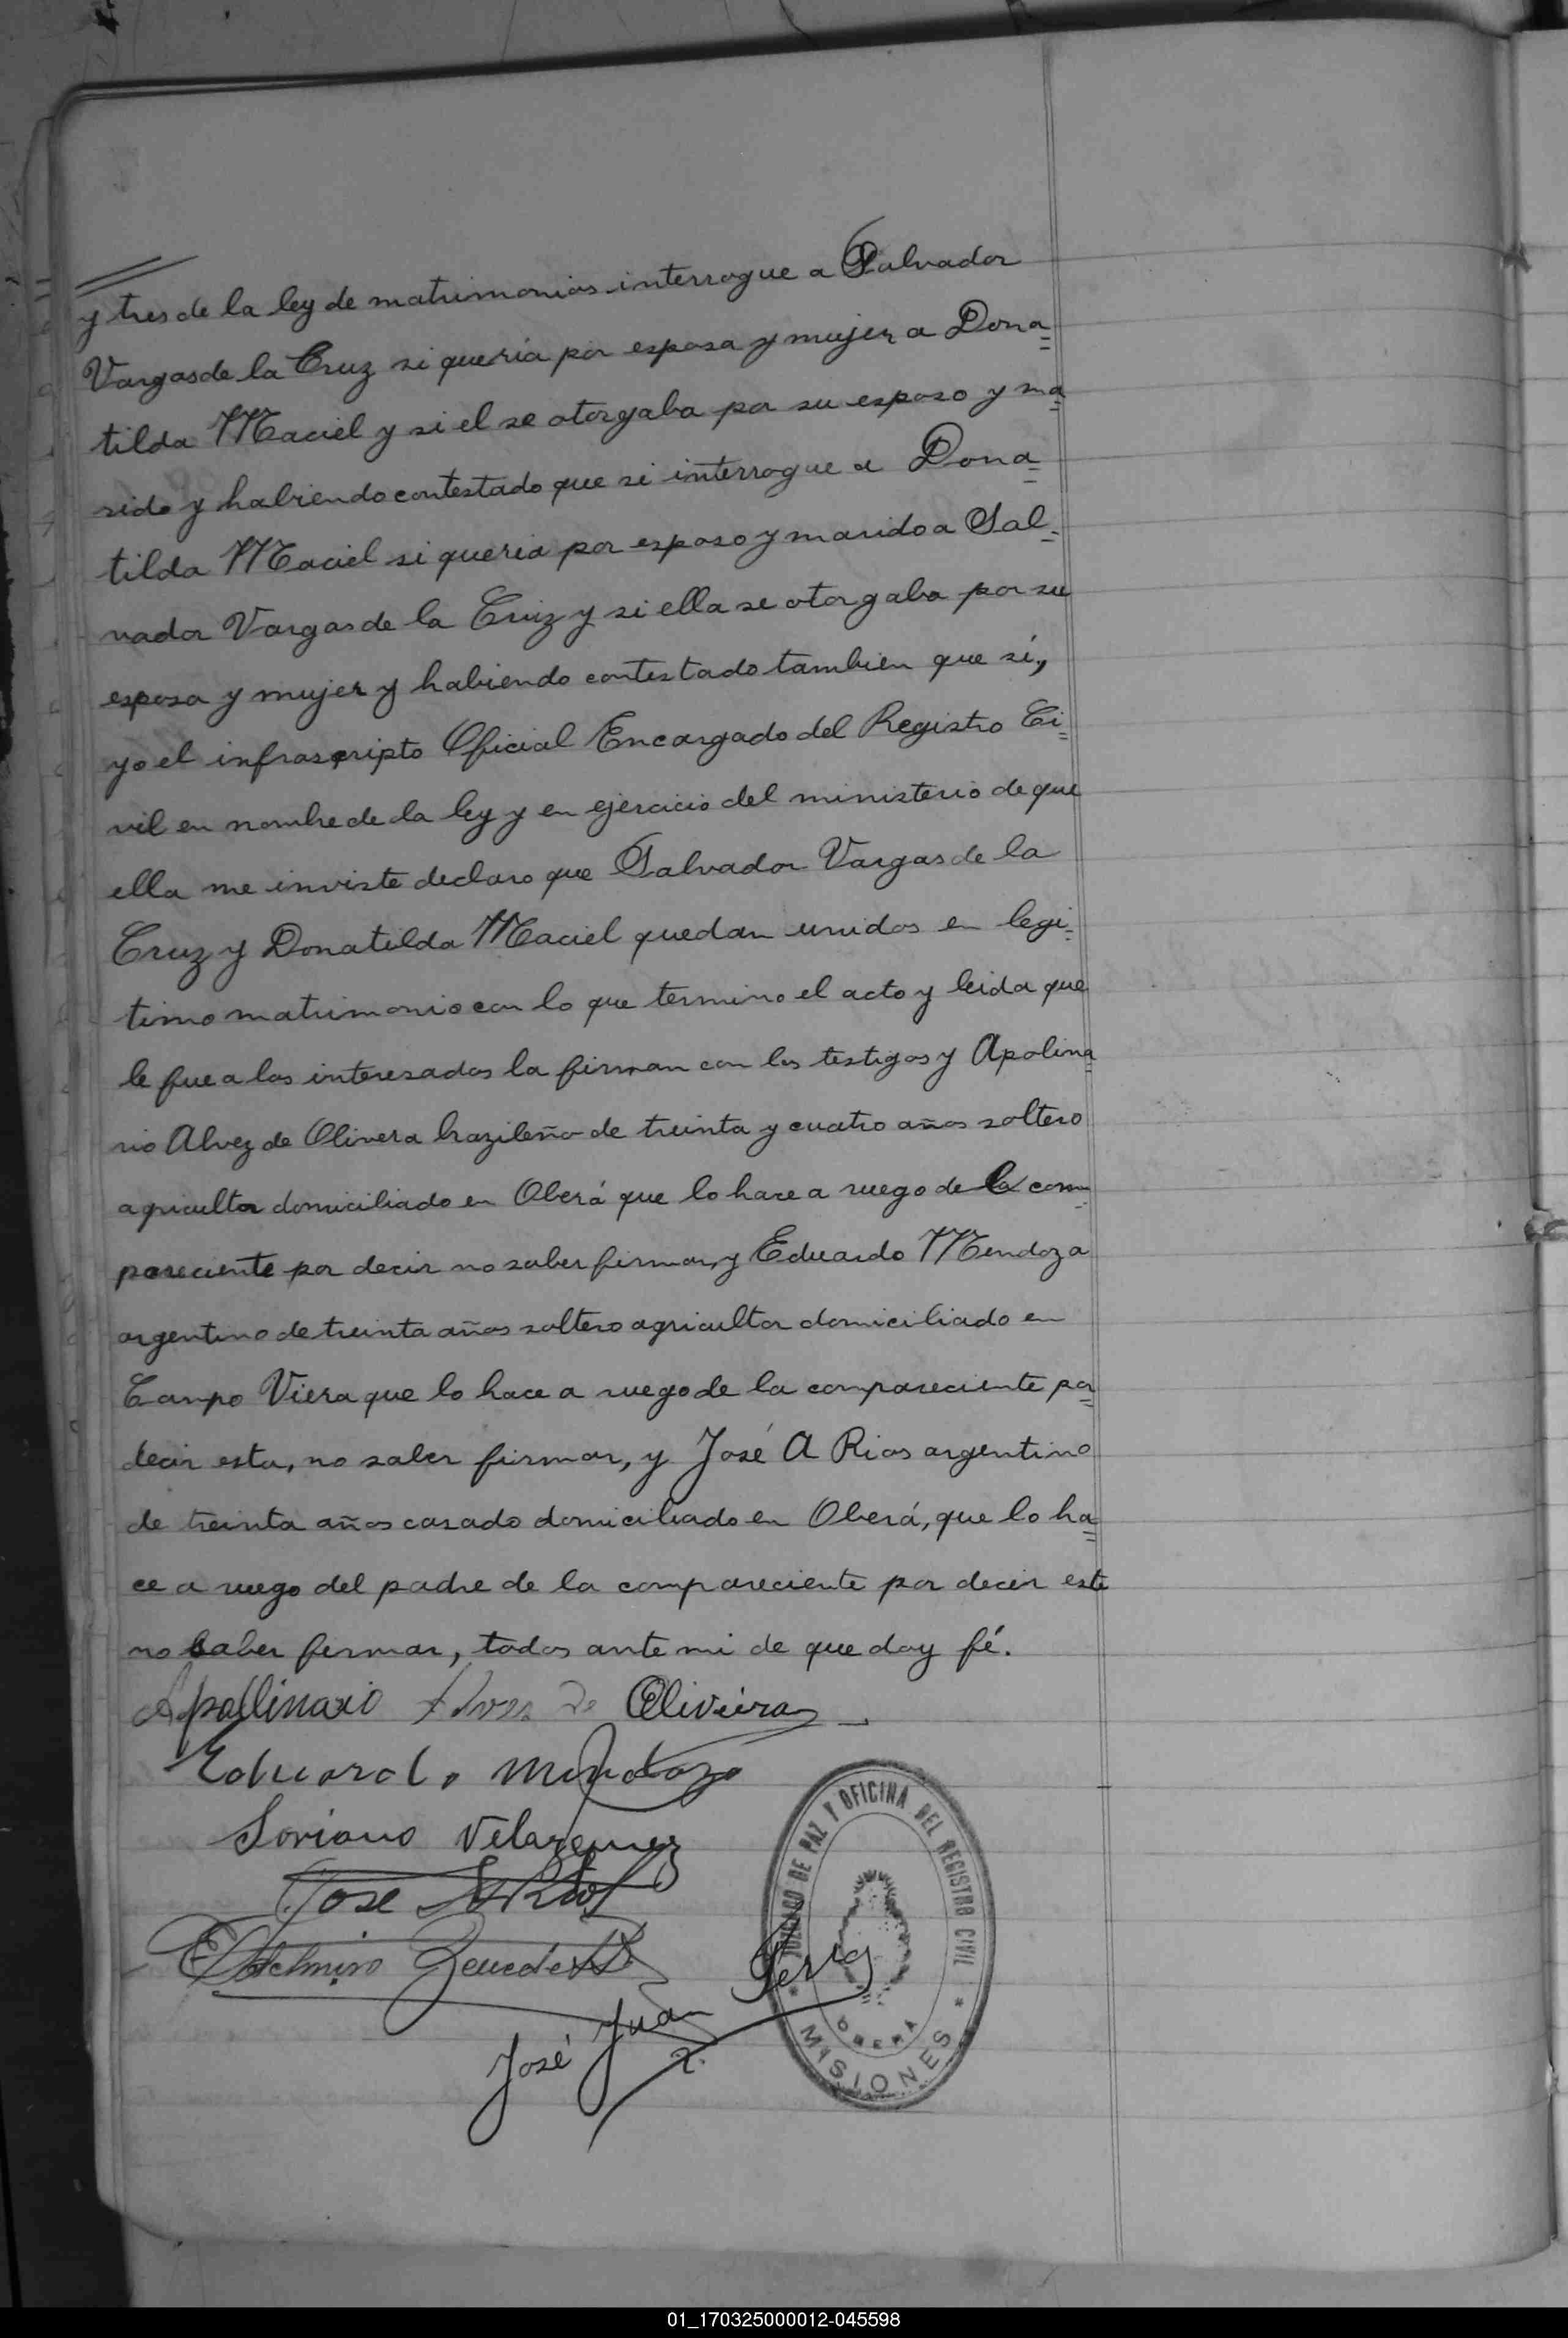 y tres de la ley de matrimonios interrogue a Salvador
Vargas de la Cruz si queria por esposa y mujer a Dona=
tilda Maciel y si el se otorgaba por su esposo y ma=
rido y habiendo contestado que si interrogue a Dona=
tilda Maciel si queria por esposo y marido a Sal=
vador Vargas de la Cruz y si ella se otorgaba por su
esposa y mujer y habiendo contestado tambien que sí,
yo el infrascripto Oficial Encargado del Registro Ci=
vil en nombre de la ley y en ejercicio del ministerio de que
ella me inviste declaro que Salvador Vargas de la
Cruz y Donatilda Maciel quedan unidos en legi=
timo matrimonio con lo que termino el acto y leida que
le fue a los interesados la firman con los testigos y Apolina
rio Alvez de Olivera brazileño de treinta y cuatro años soltero
agricultor domiciliado en Oberá que lo hace a ruego del com=
pareciente por decir no saber firmar, y Eduardo Mendoza
argentino de treinta años soltero agricultor domiciliado en
Campo Viera que lo hace a ruego de la compareciente por=
decir esta, no saber firmar, y José A Rios argentino
de treinta años casado domiciliado en Oberá, que lo ha=
ce a ruego del padre de la compareciente por decir este
no saber firmar, todos ante mi de que doy fé.
Apollinario Alves de Oliviera
Eduardo Mendoza
Soriano Velazquez
Jose A Rios
José Juan
JUZGADO DE PAZ Y OFICINA DEL REGISTRO CIVIL
* OBERA *
MISIONES
01_170325000012-045598